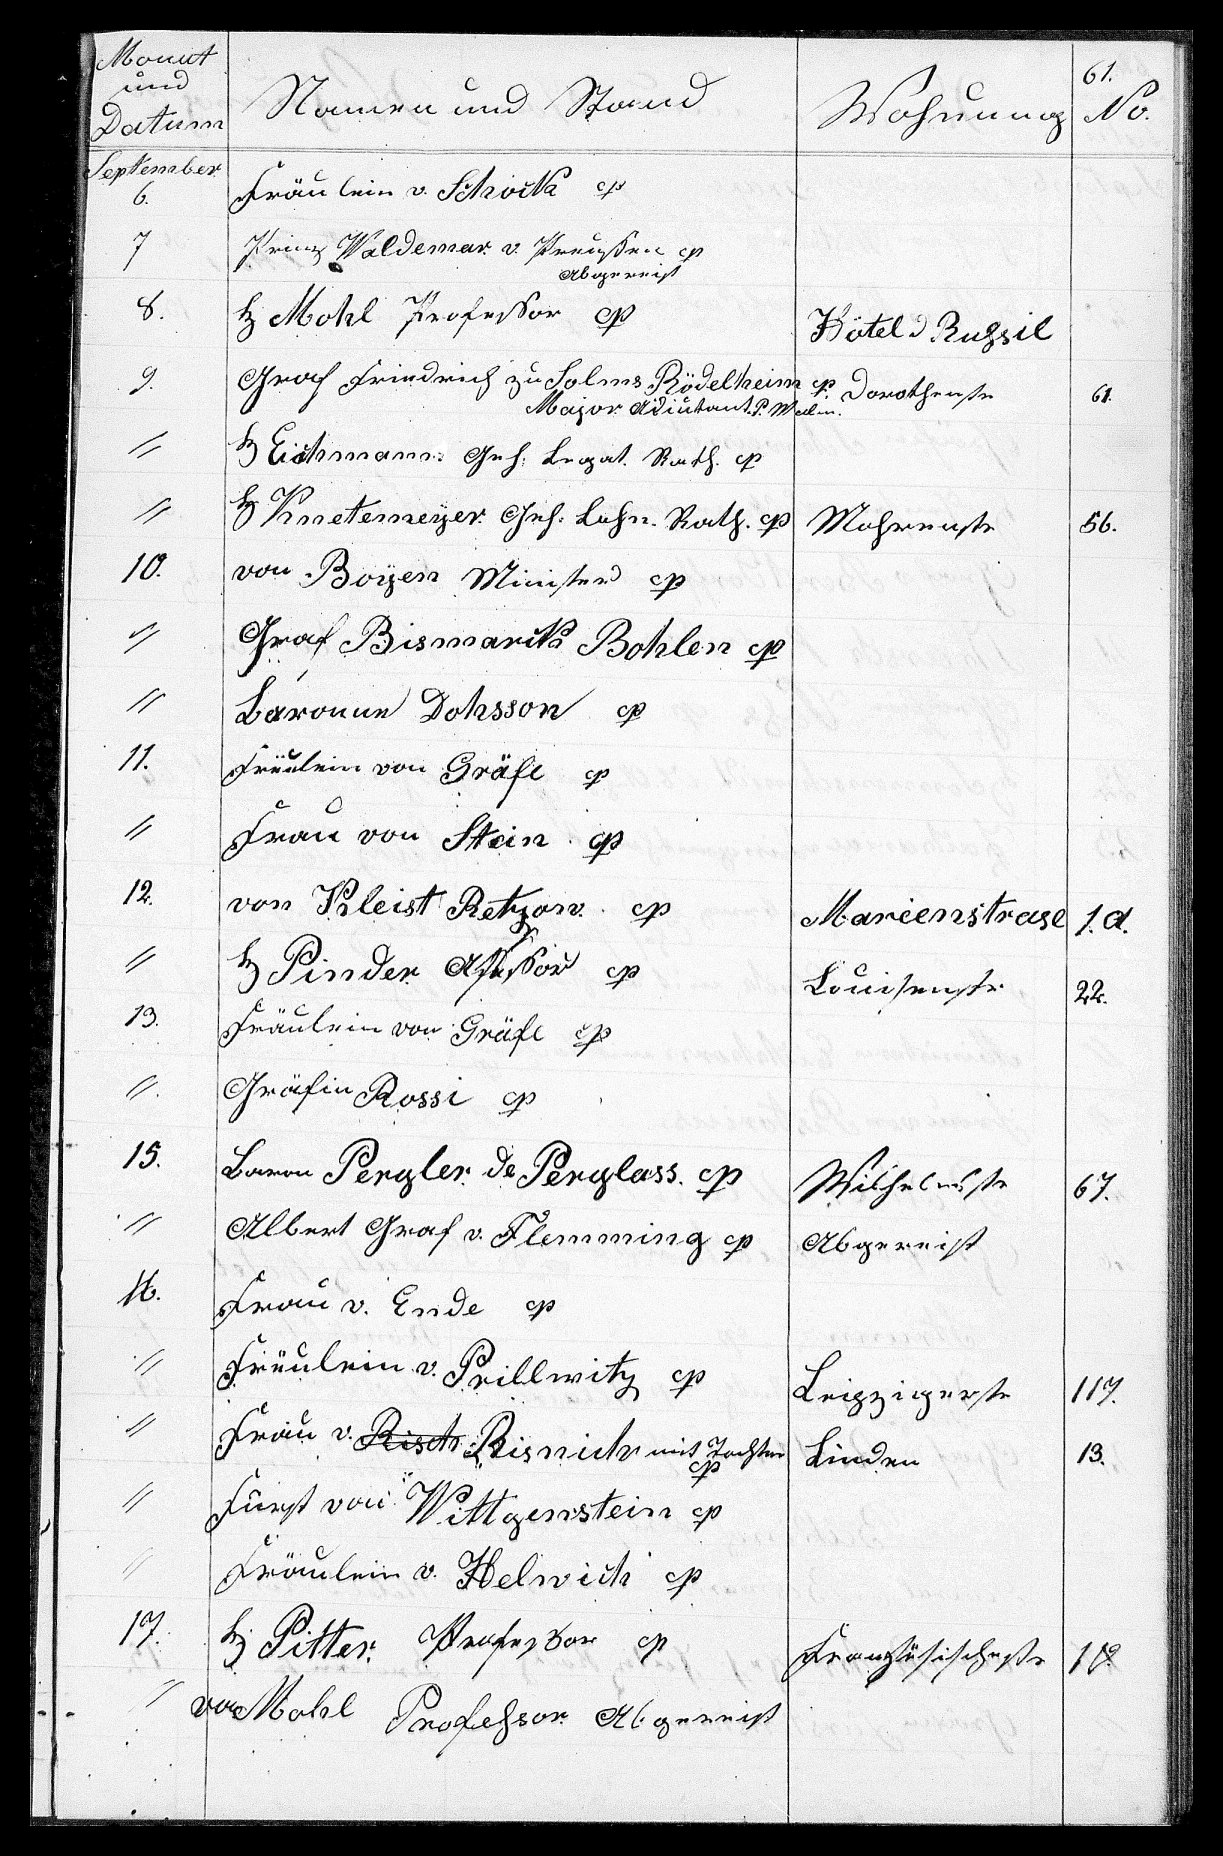 61.
Monat und Datum Namen und Stand Wohnung No.
September
6. Fräulein v. Schock cp
7 Prinz Waldemar v. Preussen cp
Abgereist
8. H Mohl Professor cp Hôtel d Russil
9. Graf Friedrich zu Solms Rödelheim cp. Dorothenstr 61.
Major Adiutant. P. Waldm.
" H Eichmann Geh: Legat. Rath. cp
" H Knetemeyer Geh: Rath. cp Mohrenstr 56.
10. von Boyen Minister cp
" Graf Bismarck Bohlen cp
" Baronne Dohsson cp
11. Fräulein von Gräfe cp
" Frau von Stein cp
12. von Kleist Retzow. cp Marienstrase 1. a.
" H Pinder Assessor cp Louisenstr 22.
13. Fräulein von Gräfe cp
" Gräfin Rossi cp
15. Baron Pergler de Perglass. cp Wilhelmstr 67.
" Albert Graf v. Flemming cp Abgereist
16. Frau v. Ende cp
" Fräulein v. Prillwitz cp Leipzigerstr 117.
" Frau v. Risch Risnich mit Tochter Linden 13.
cp
" Fürst von Wittgenstein cp
" Fräulein v. Helwich cp
17. H Pitter. Professor cp Französischestr
" von Mohl Professor Abgereist